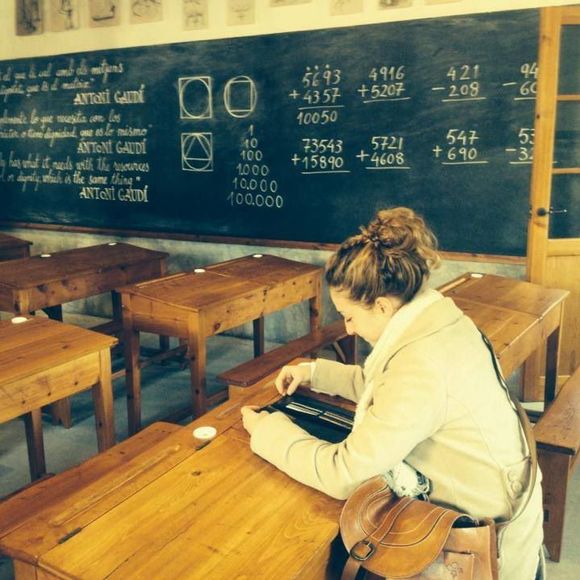 que amb els mitjans
dignitat, que és el mateix
ANTONI GAUDÍ
lo que necesita con los
o tiene dignidad, que es lo mismo
ANTONI GAUDÍ
has what it needs with the resources
or dignity, which is the same thing"
ANTONI GAUDÍ
1
10
100
1.000
10.000
100.000
5693
+ 4357
10050
4916
+ 5207
421
- 208
94
- 60
73543
+ 15890
5721
+ 4608
547
+ 690